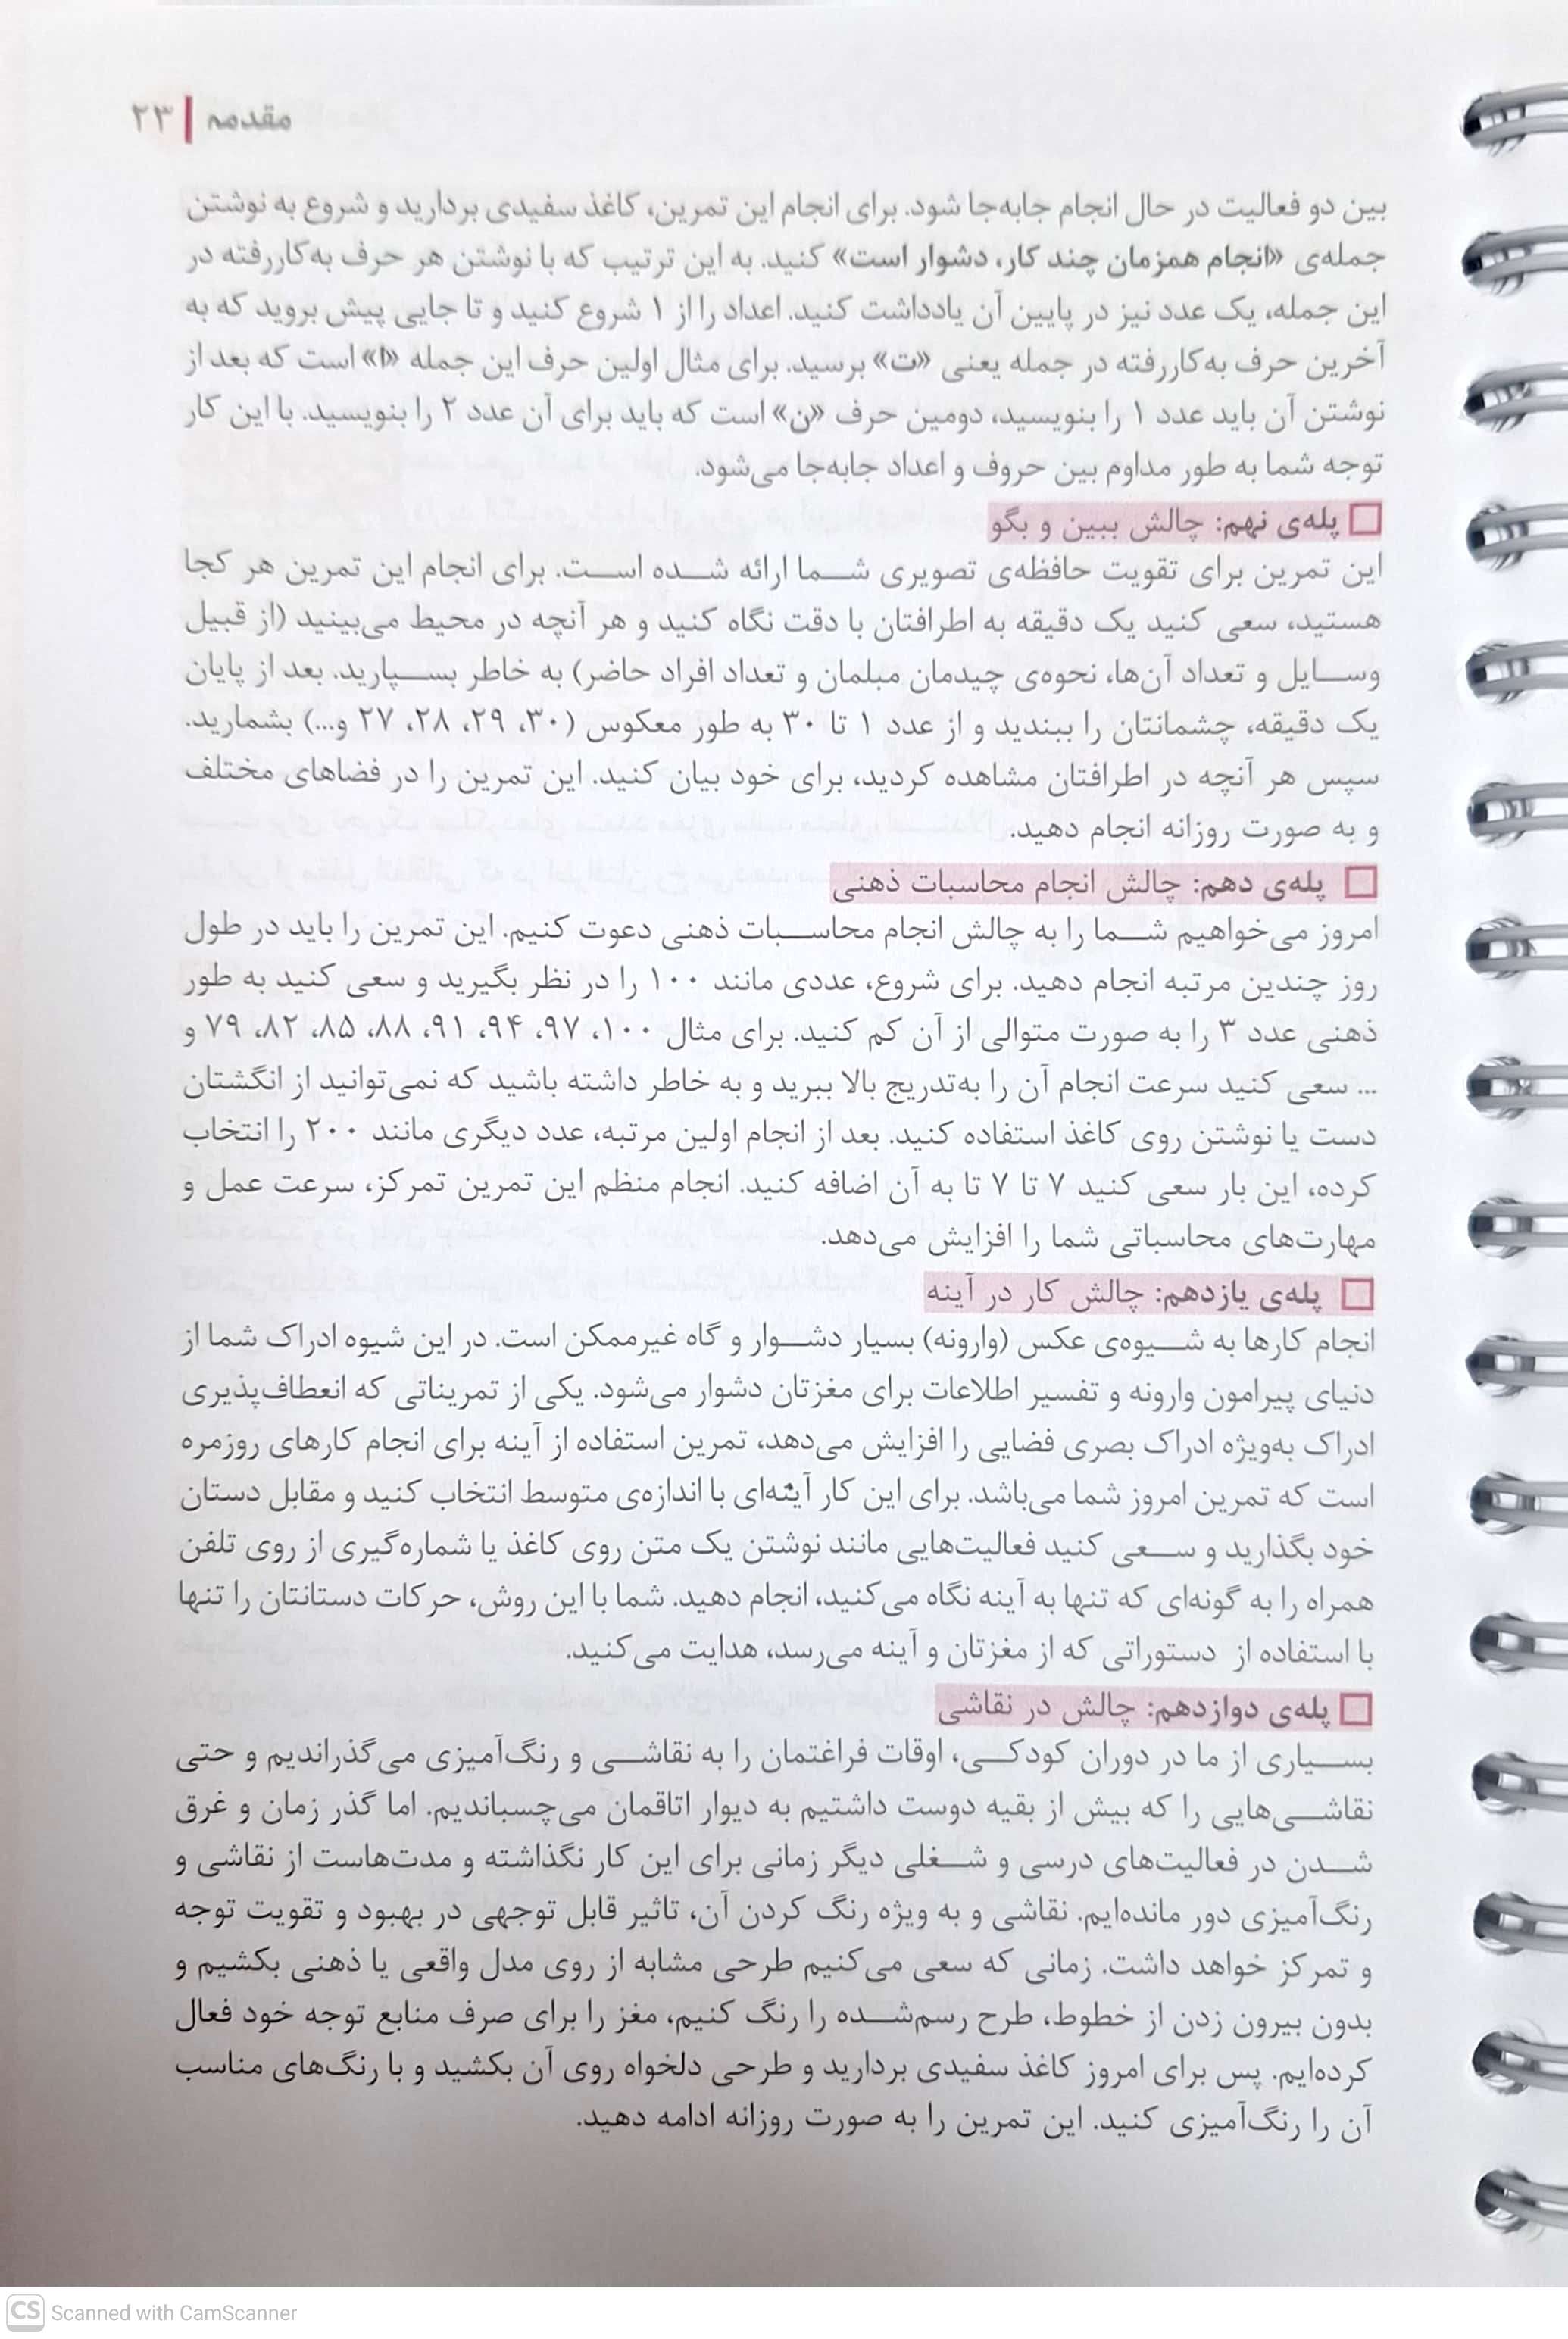 مقدمه | ۲۳
بین دو فعالیت در حال انجام جابه‌جا شود. برای انجام این تمرین، کاغذ سفیدی بردارید و شروع به نوشتن
جمله‌ی «انجام همزمان چند کار، دشوار است» کنید. به این ترتیب که با نوشتن هر حرف به‌کاررفته در
این جمله، یک عدد نیز در پایین آن یادداشت کنید. اعداد را از ۱ شروع کنید و تا جایی پیش بروید که به
آخرین حرف به‌کاررفته در جمله یعنی «ت» برسید. برای مثال اولین حرف این جمله «ا» است که بعد از
نوشتن آن باید عدد ۱ را بنویسید، دومین حرف «ن» است که باید برای آن عدد ۲ را بنویسید. با این کار
توجه شما به طور مداوم بین حروف و اعداد جابه‌جا می‌شود.
□ پله‌ی نهم: چالش ببین و بگو
این تمرین برای تقویت حافظه‌ی تصویری شما ارائه شده است. برای انجام این تمرین هر کجا
هستید، سعی کنید یک دقیقه به اطرافتان با دقت نگاه کنید و هر آنچه در محیط می‌بینید (از قبیل
وسایل و تعداد آن‌ها، نحوه‌ی چیدمان مبلمان و تعداد افراد حاضر) به خاطر بسپارید. بعد از پایان
یک دقیقه، چشمانتان را ببندید و از عدد ۱ تا ۳۰ به طور معکوس (۳۰، ۲۹، ۲۸، ۲۷ و...) بشمارید.
سپس هر آنچه در اطرافتان مشاهده کردید، برای خود بیان کنید. این تمرین را در فضاهای مختلف
و به صورت روزانه انجام دهید.
□ پله‌ی دهم: چالش انجام محاسبات ذهنی
امروز می‌خواهیم شما را به چالش انجام محاسبات ذهنی دعوت کنیم. این تمرین را باید در طول
روز چندین مرتبه انجام دهید. برای شروع، عددی مانند ۱۰۰ را در نظر بگیرید و سعی کنید به طور
ذهنی عدد ۳ را به صورت متوالی از آن کم کنید. برای مثال ۱۰۰، ۹۷، ۹۴، ۹۱، ۸۸، ۸۵، ۸۲، ۷۹ و
... سعی کنید سرعت انجام آن را به‌تدریج بالا ببرید و به خاطر داشته باشید که نمی‌توانید از انگشتان
دست یا نوشتن روی کاغذ استفاده کنید. بعد از انجام اولین مرتبه، عدد دیگری مانند ۲۰۰ را انتخاب
کرده، این بار سعی کنید ۷ تا ۷ تا به آن اضافه کنید. انجام منظم این تمرین تمرکز، سرعت عمل و
مهارت‌های محاسباتی شما را افزایش می‌دهد.
□ پله‌ی یازدهم: چالش کار در آینه
انجام کارها به شیوه‌ی عکس (وارونه) بسیار دشوار و گاه غیرممکن است. در این شیوه ادراک شما از
دنیای پیرامون وارونه و تفسیر اطلاعات برای مغزتان دشوار می‌شود. یکی از تمریناتی که انعطاف‌پذیری
ادراک به‌ویژه ادراک بصری فضایی را افزایش می‌دهد، تمرین استفاده از آینه برای انجام کارهای روزمره
است که تمرین امروز شما می‌باشد. برای این کار آینه‌ای با اندازه‌ی متوسط انتخاب کنید و مقابل دستان
خود بگذارید و سعی کنید فعالیت‌هایی مانند نوشتن یک متن روی کاغذ یا شماره‌گیری از روی تلفن
همراه را به گونه‌ای که تنها به آینه نگاه می‌کنید، انجام دهید. شما با این روش، حرکات دستانتان را تنها
با استفاده از دستوراتی که از مغزتان و آینه می‌رسد، هدایت می‌کنید.
□ پله‌ی دوازدهم: چالش در نقاشی
بسیاری از ما در دوران کودکی، اوقات فراغتمان را به نقاشی و رنگ‌آمیزی می‌گذراندیم و حتی
نقاشی‌هایی را که بیش از بقیه دوست داشتیم به دیوار اتاقمان می‌چسباندیم. اما گذر زمان و غرق
شدن در فعالیت‌های درسی و شغلی دیگر زمانی برای این کار نگذاشته و مدت‌هاست از نقاشی و
رنگ‌آمیزی دور مانده‌ایم. نقاشی و به ویژه رنگ کردن آن، تاثیر قابل توجهی در بهبود و تقویت توجه
و تمرکز خواهد داشت. زمانی که سعی می‌کنیم طرحی مشابه از روی مدل واقعی یا ذهنی بکشیم و
بدون بیرون زدن از خطوط، طرح رسم‌شده را رنگ کنیم، مغز را برای صرف منابع توجه خود فعال
کرده‌ایم. پس برای امروز کاغذ سفیدی بردارید و طرحی دلخواه روی آن بکشید و با رنگ‌های مناسب
آن را رنگ‌آمیزی کنید. این تمرین را به صورت روزانه ادامه دهید.
CS Scanned with CamScanner